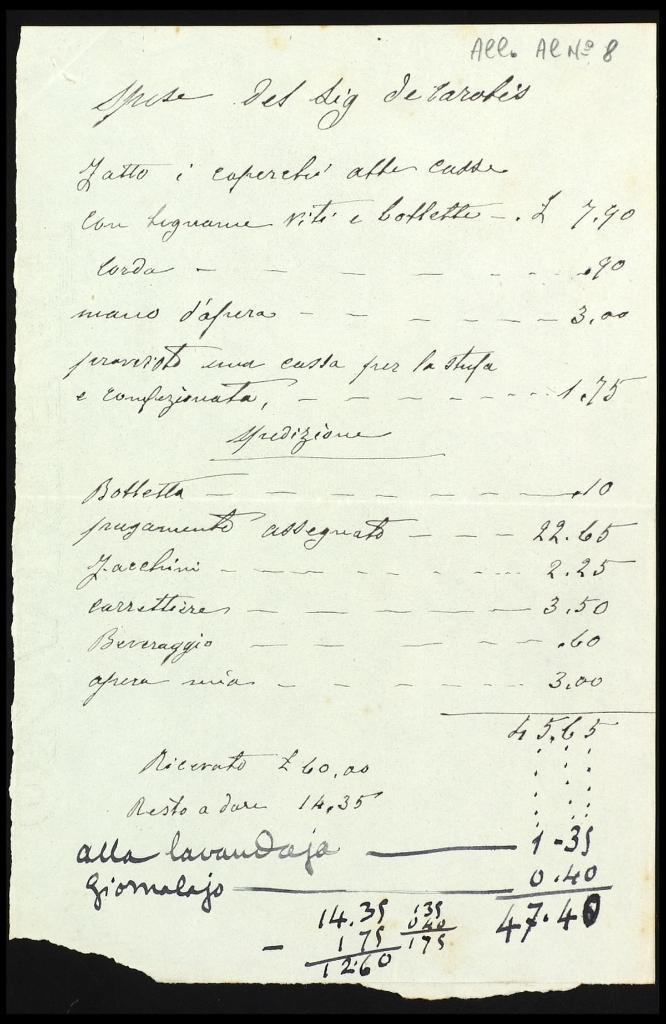 All. Al Nº 8
Spese del Sig De Carolis
Fatto i coperchi alle casse
con legname viti e bollette - . £ 7.90
Corda - - - - - .90
mano d'opera - - - - - 3.00
provvisto una cassa per la stufa
e confezionata, - - - - 1.75
Spedizione
Bolletta - - - - - .10
pagamento assegnato - - - 22.65
Facchini - - - - - 2.25
carrettiere - - - - - 3.50
Beveraggio - - - - .60
opera mia - - - - 3.00
45.65
Ricevuto £ 60,00
Resto a dare 14,35
alla lavandaja — 1-35
Giornalajo — 0.40
47.40
14.35 135
- 175 040
12.60 175